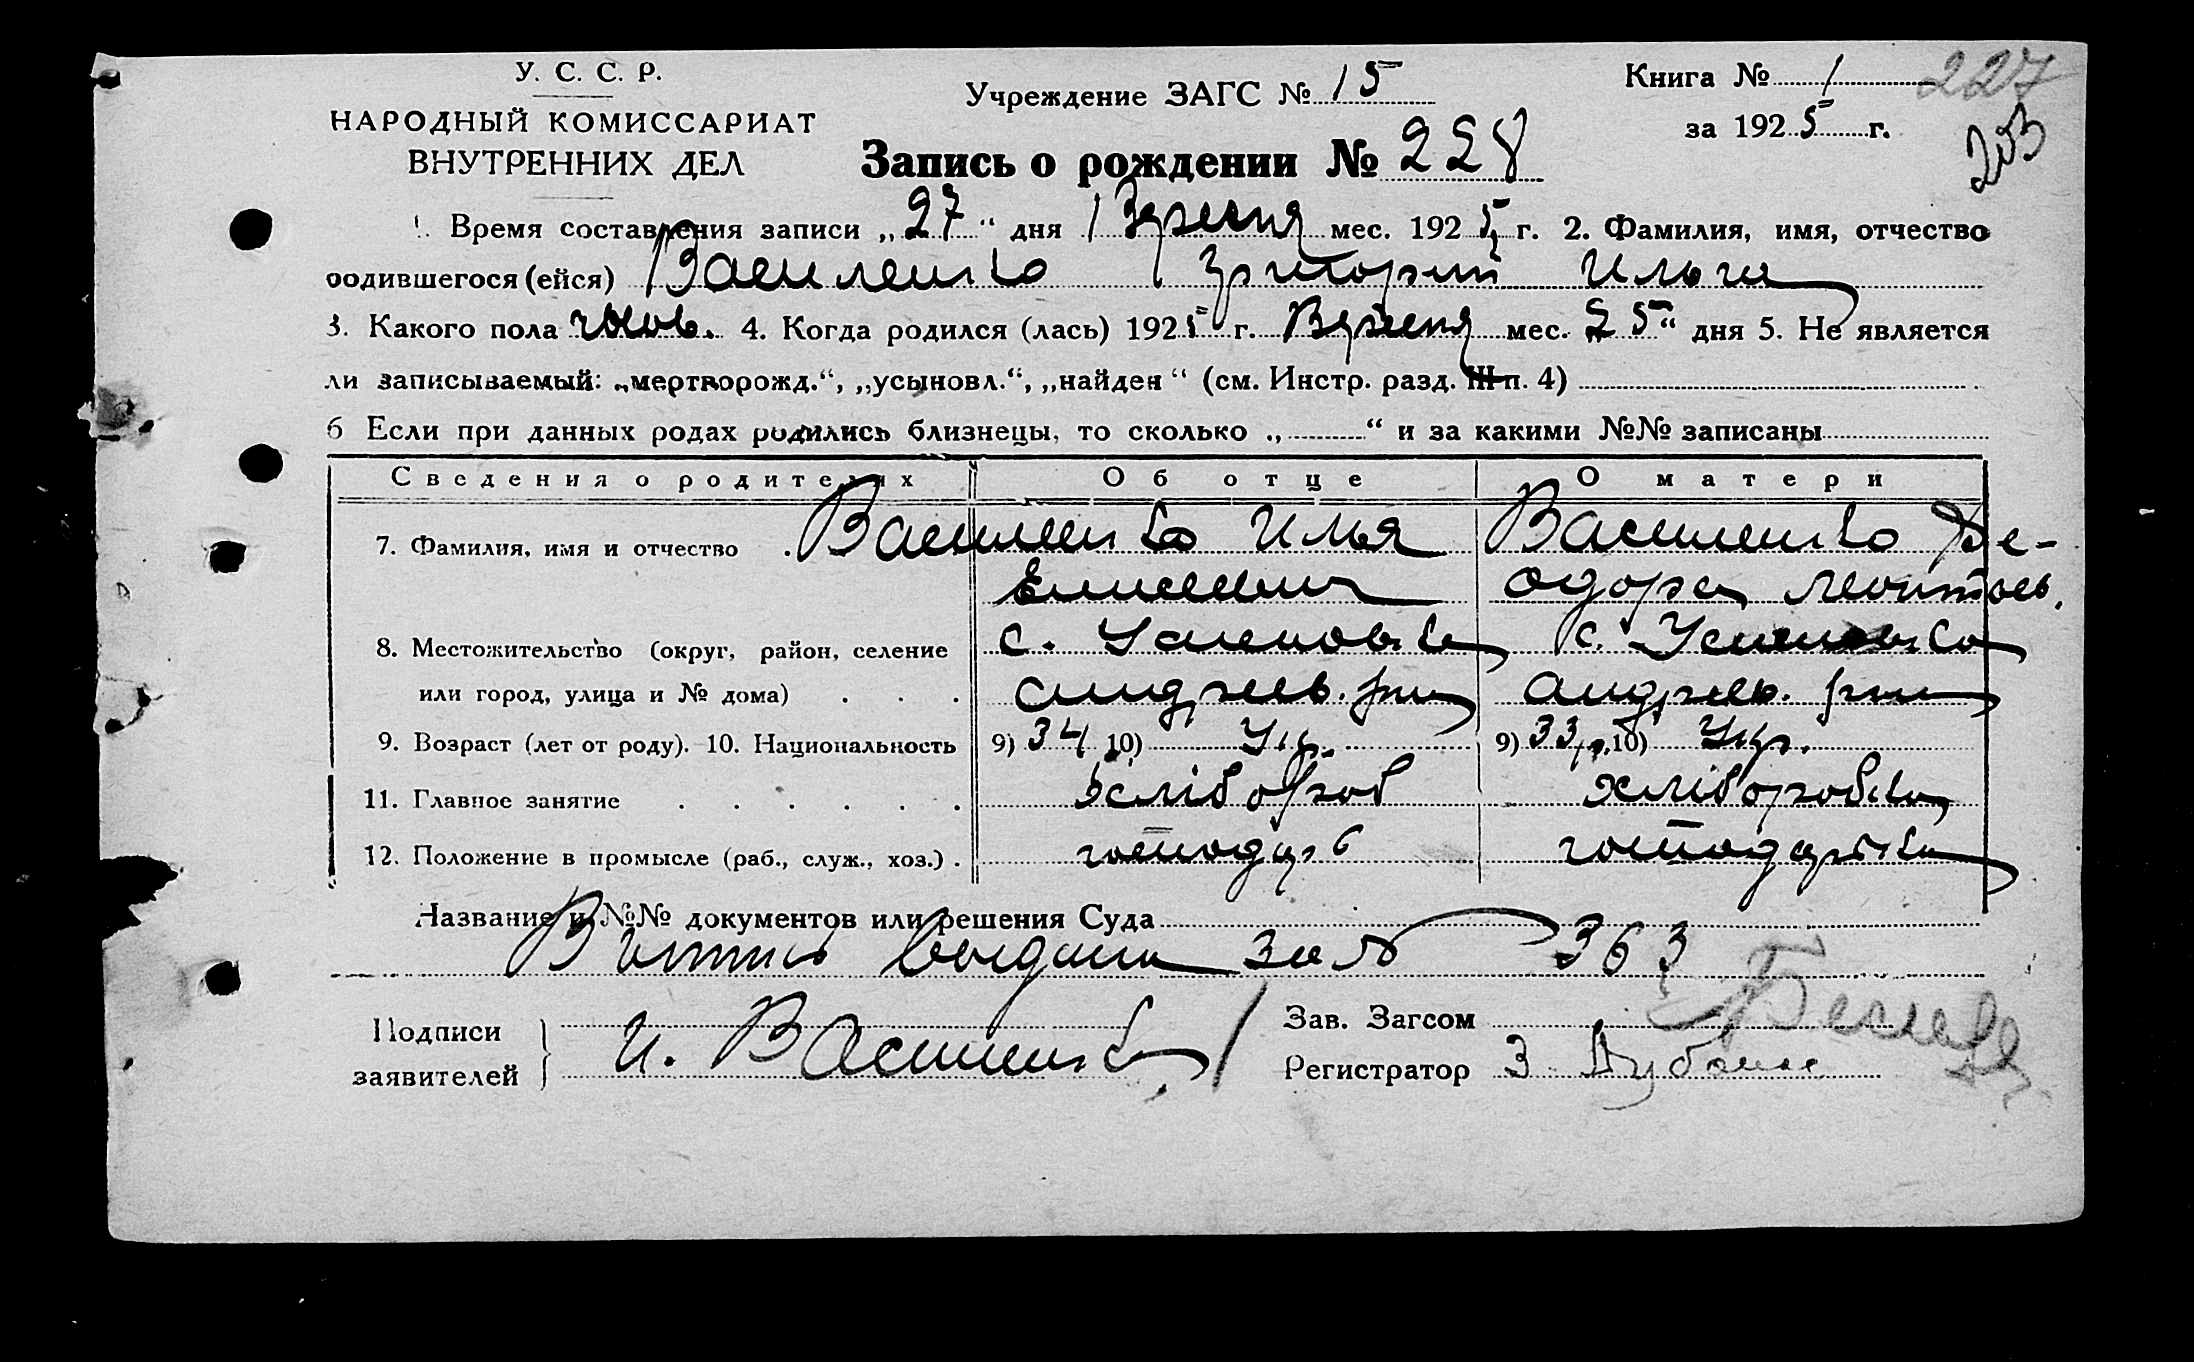 У. С. С. Р.
НАРОДНЫЙ КОМИССАРИАТ
ВНУТРЕННИХ ДЕЛ
Учреждение ЗАГС № 15
Книга № 1 227
за 1925 г.
203
Запись о рождении № 228
1. Время составления записи „27“ дня Вересня мес. 1925 г. 2. Фамилия, имя, отчество
родившегося (ейся) Василенко Григорий Ильич
3. Какого пола чолов. 4. Когда родился (лась) 1925 г. Вересня мес. 25“ дня 5. Не является
ли записываемый: „мертворожд.“, „усыновл.“, „найден“ (см. Инстр. разд. III п. 4)
6 Если при данных родах родились близнецы, то сколько „ “ и за какими №№ записаны
Сведения о родителях Об отце О матери
7. Фамилия, имя и отчество Василенко Илья Василенко Фе-
Елисеевич одора Леонтьев.
8. Местожительство (округ, район, селение с. Успеновка с. Успеновка
или город, улица и № дома) Андреев. рну Андреев. рну
9. Возраст (лет от роду). 10. Национальность 9) 34 10) Укр. 9) 33 10) Укр.
11. Главное занятие хлібороб хліборобка
12. Положение в промысле (раб., служ., хоз.) господар господарька
Название и №№ документов или решения Суда
Витпись выдана за № 363
Подписи
заявителей
И. Василенко
Зав. Загсом
Регистратор